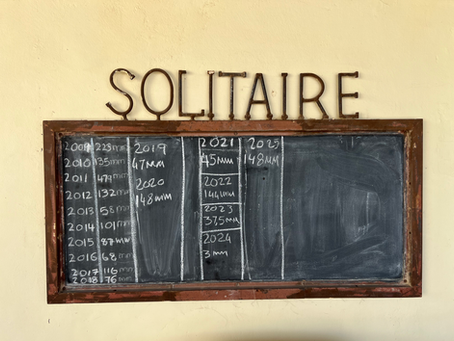 SOLITAIRE
2009 223mm
2010 135mm
2011 479mm
2012 132mm
2013 58mm
2014 101mm
2015 87mm
2016 68mm
2017 116mm
2018 76mm
2019
47MM
2020
148MM
2021
45MM
2022
144MM
2023
37,5MM
2024
3mm
2025
148MM